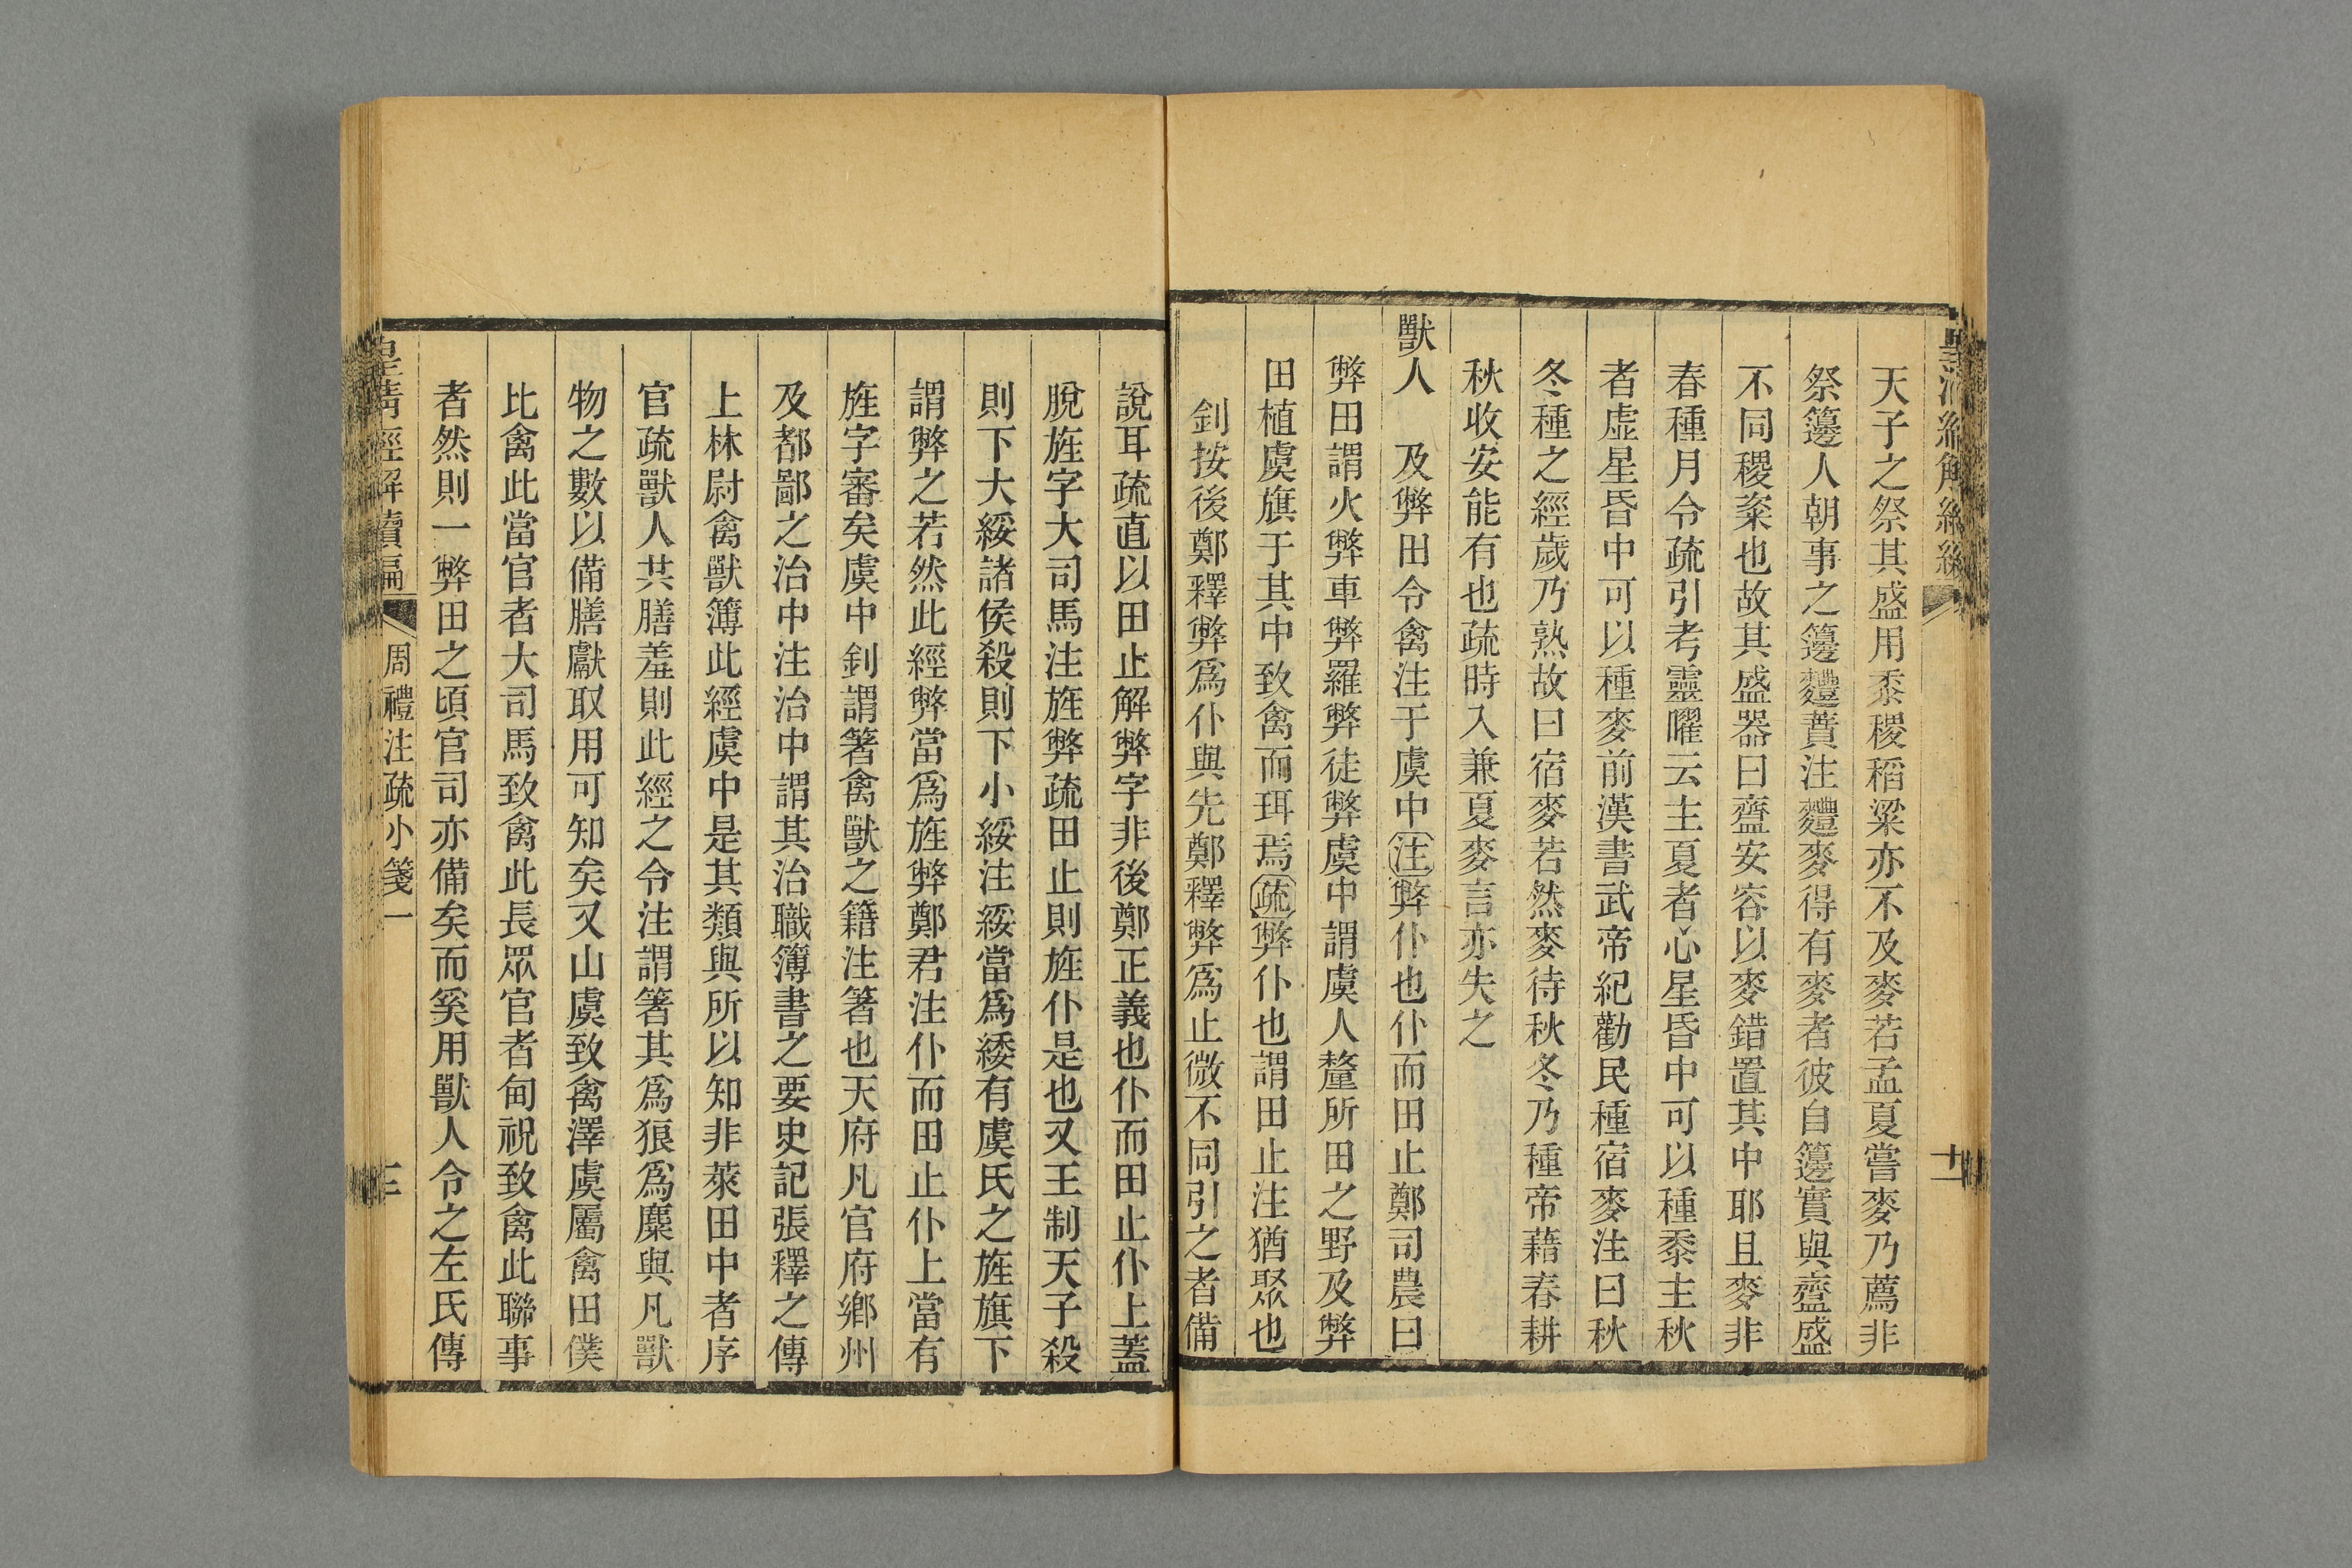 天子之祭其盛用黍稷稻粱亦不及麥若孟夏嘗麥乃薦非
祭籩人朝事之籩麷蕡注麷麥得有麥者彼自籩實與齍盛
不同稷粢也故其盛器曰齍安容以麥錯置其中耶且麥非
春種月令疏引考靈曜云主夏者心星昏中可以種黍主秋
者虛星昏中可以種麥前漢書武帝紀勸民種宿麥注曰秋
冬種之經歲乃熟故曰宿麥若然麥待秋冬乃種帝藉春耕
秋收安能有也疏時入兼夏麥言亦失之
獸人　及弊田令禽注于虞中注弊仆也仆而田止鄭司農曰
弊田謂火弊車弊羅弊徒弊虞中謂虞人釐所田之野及弊
田植虞旗于其中致禽而珥焉疏弊仆也謂田止注猶聚也
釗按後鄭釋弊爲仆與先鄭釋弊爲止微不同引之者備
說耳疏直以田止解弊字非後鄭正義也仆而田止仆上蓋
脫旌字大司馬注旌弊疏田止則旌仆是也又王制天子殺
則下大綏諸侯殺則下小綏注綏當爲緌有虞氏之旌旗下
謂弊之若然此經弊當爲旌弊鄭君注仆而田止仆上當有
旌字審矣虞中釗謂箸禽獸之籍注箸也天府凡官府鄉州
及都鄙之治中注治中謂其治職簿書之要史記張釋之傳
上林尉禽獸簿此經虞中是其類與所以知非萊田中者序
官疏獸人共膳羞則此經之令注謂箸其爲狼爲麋與凡獸
物之數以備膳獻取用可知矣又山虞致禽澤虞屬禽田僕
比禽此當官者大司馬致禽此長眾官者甸祝致禽此聯事
者然則一弊田之頃官司亦備矣而奚用獸人令之左氏傳
皇清經解續編　周禮注疏小箋一　三